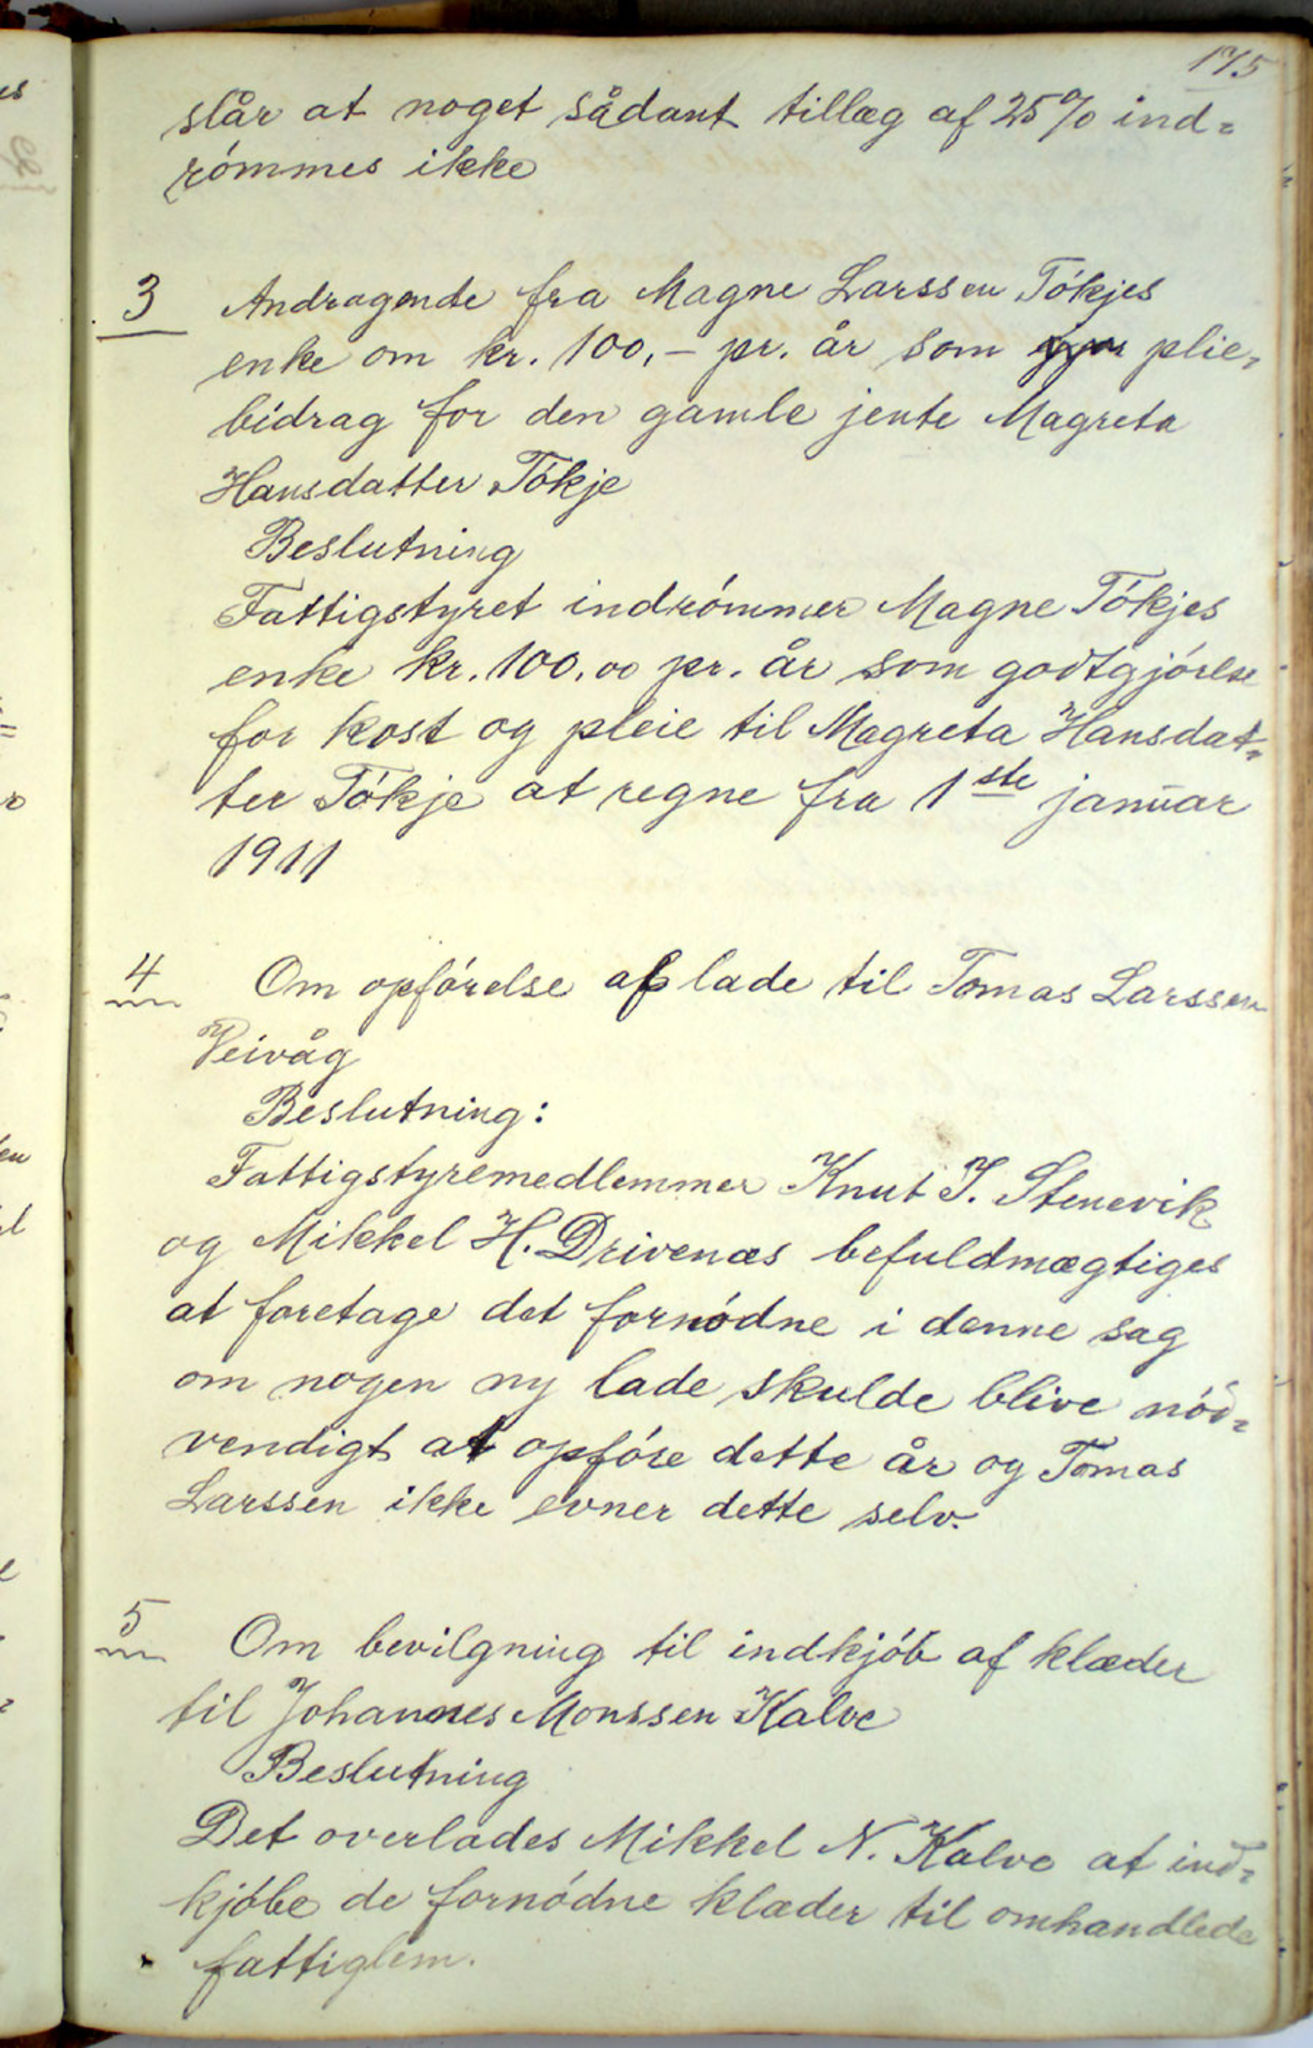 175
slår at noget sådant tillæg af 25% ind=
rómmes ikke
3 Andragende fra Magne Larssen Tókjes
enke om kr. 100,- pr. år som plie=
bidrag for den gamle jente Magreta
Hansdatter Tókje
Beslutning
Fattigstyret indrómmer Magne Tókjes
enke kr. 100.00 pr. år som godtgjórelse
for kost og pleie til Magreta Hansdat=
ter Tókje at regne fra 1ste januar
1911
4 Om opfórelse af lade til Tomas Larssen
Veivåg
Beslutning:
Fattigstyremedlemmer Knut J. Stenevik
og Mikkel H. Drivenæs befuldmægtiges
at foretage det fornódne i denne sag
om nogen ny lade skulde blive nód=
vendigt at opfóre dette år og Tomas
Larssen ikke evner dette selv.
5 Om bevilgning til indkjób af klæder
til Johannes Monssen Kalve
Beslutning
Det overlades Mikkel N. Kalve at ind=
kjóbe de fornódne klæder til omhandlede
fattiglem.